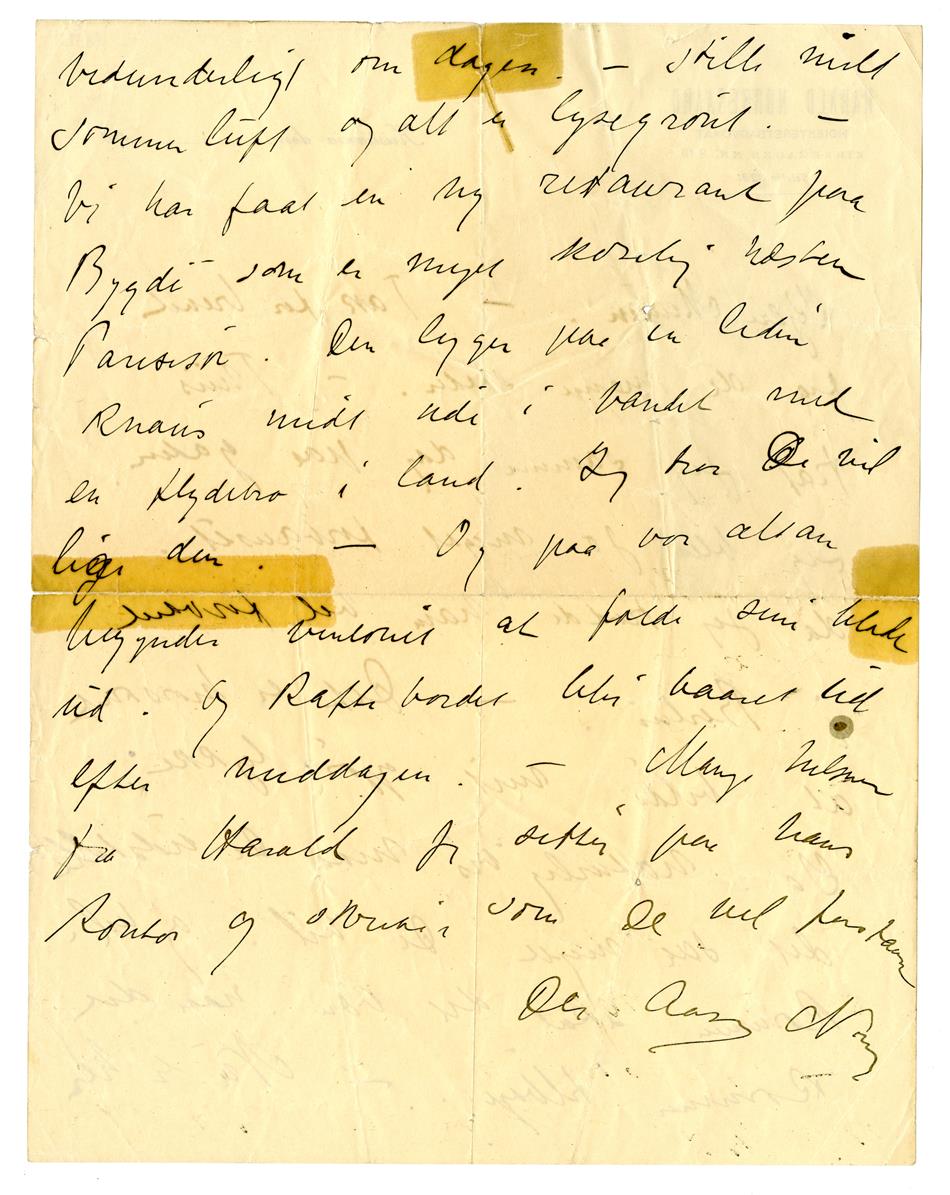 vidunderligt om dagen. – stille mild
sommerluft og alt er lysegrønt. –
Vi har faat en ny restaurant paa
Bygdö som er meget koselig næsten
Parisisk. Den ligger paa en liden
knaus midt ude i vandet med
en flydebro i land. Jeg tror De vil
lige den. – Og paa vor altan
begynder vinløvet at folde sine blade
ud. Og kaffebordet blir baaret ud
efter middagen. – Mange hilsner
fra Harald jeg sitter paa hans
kontor og skriver som De vel forstaar
Deres Aase